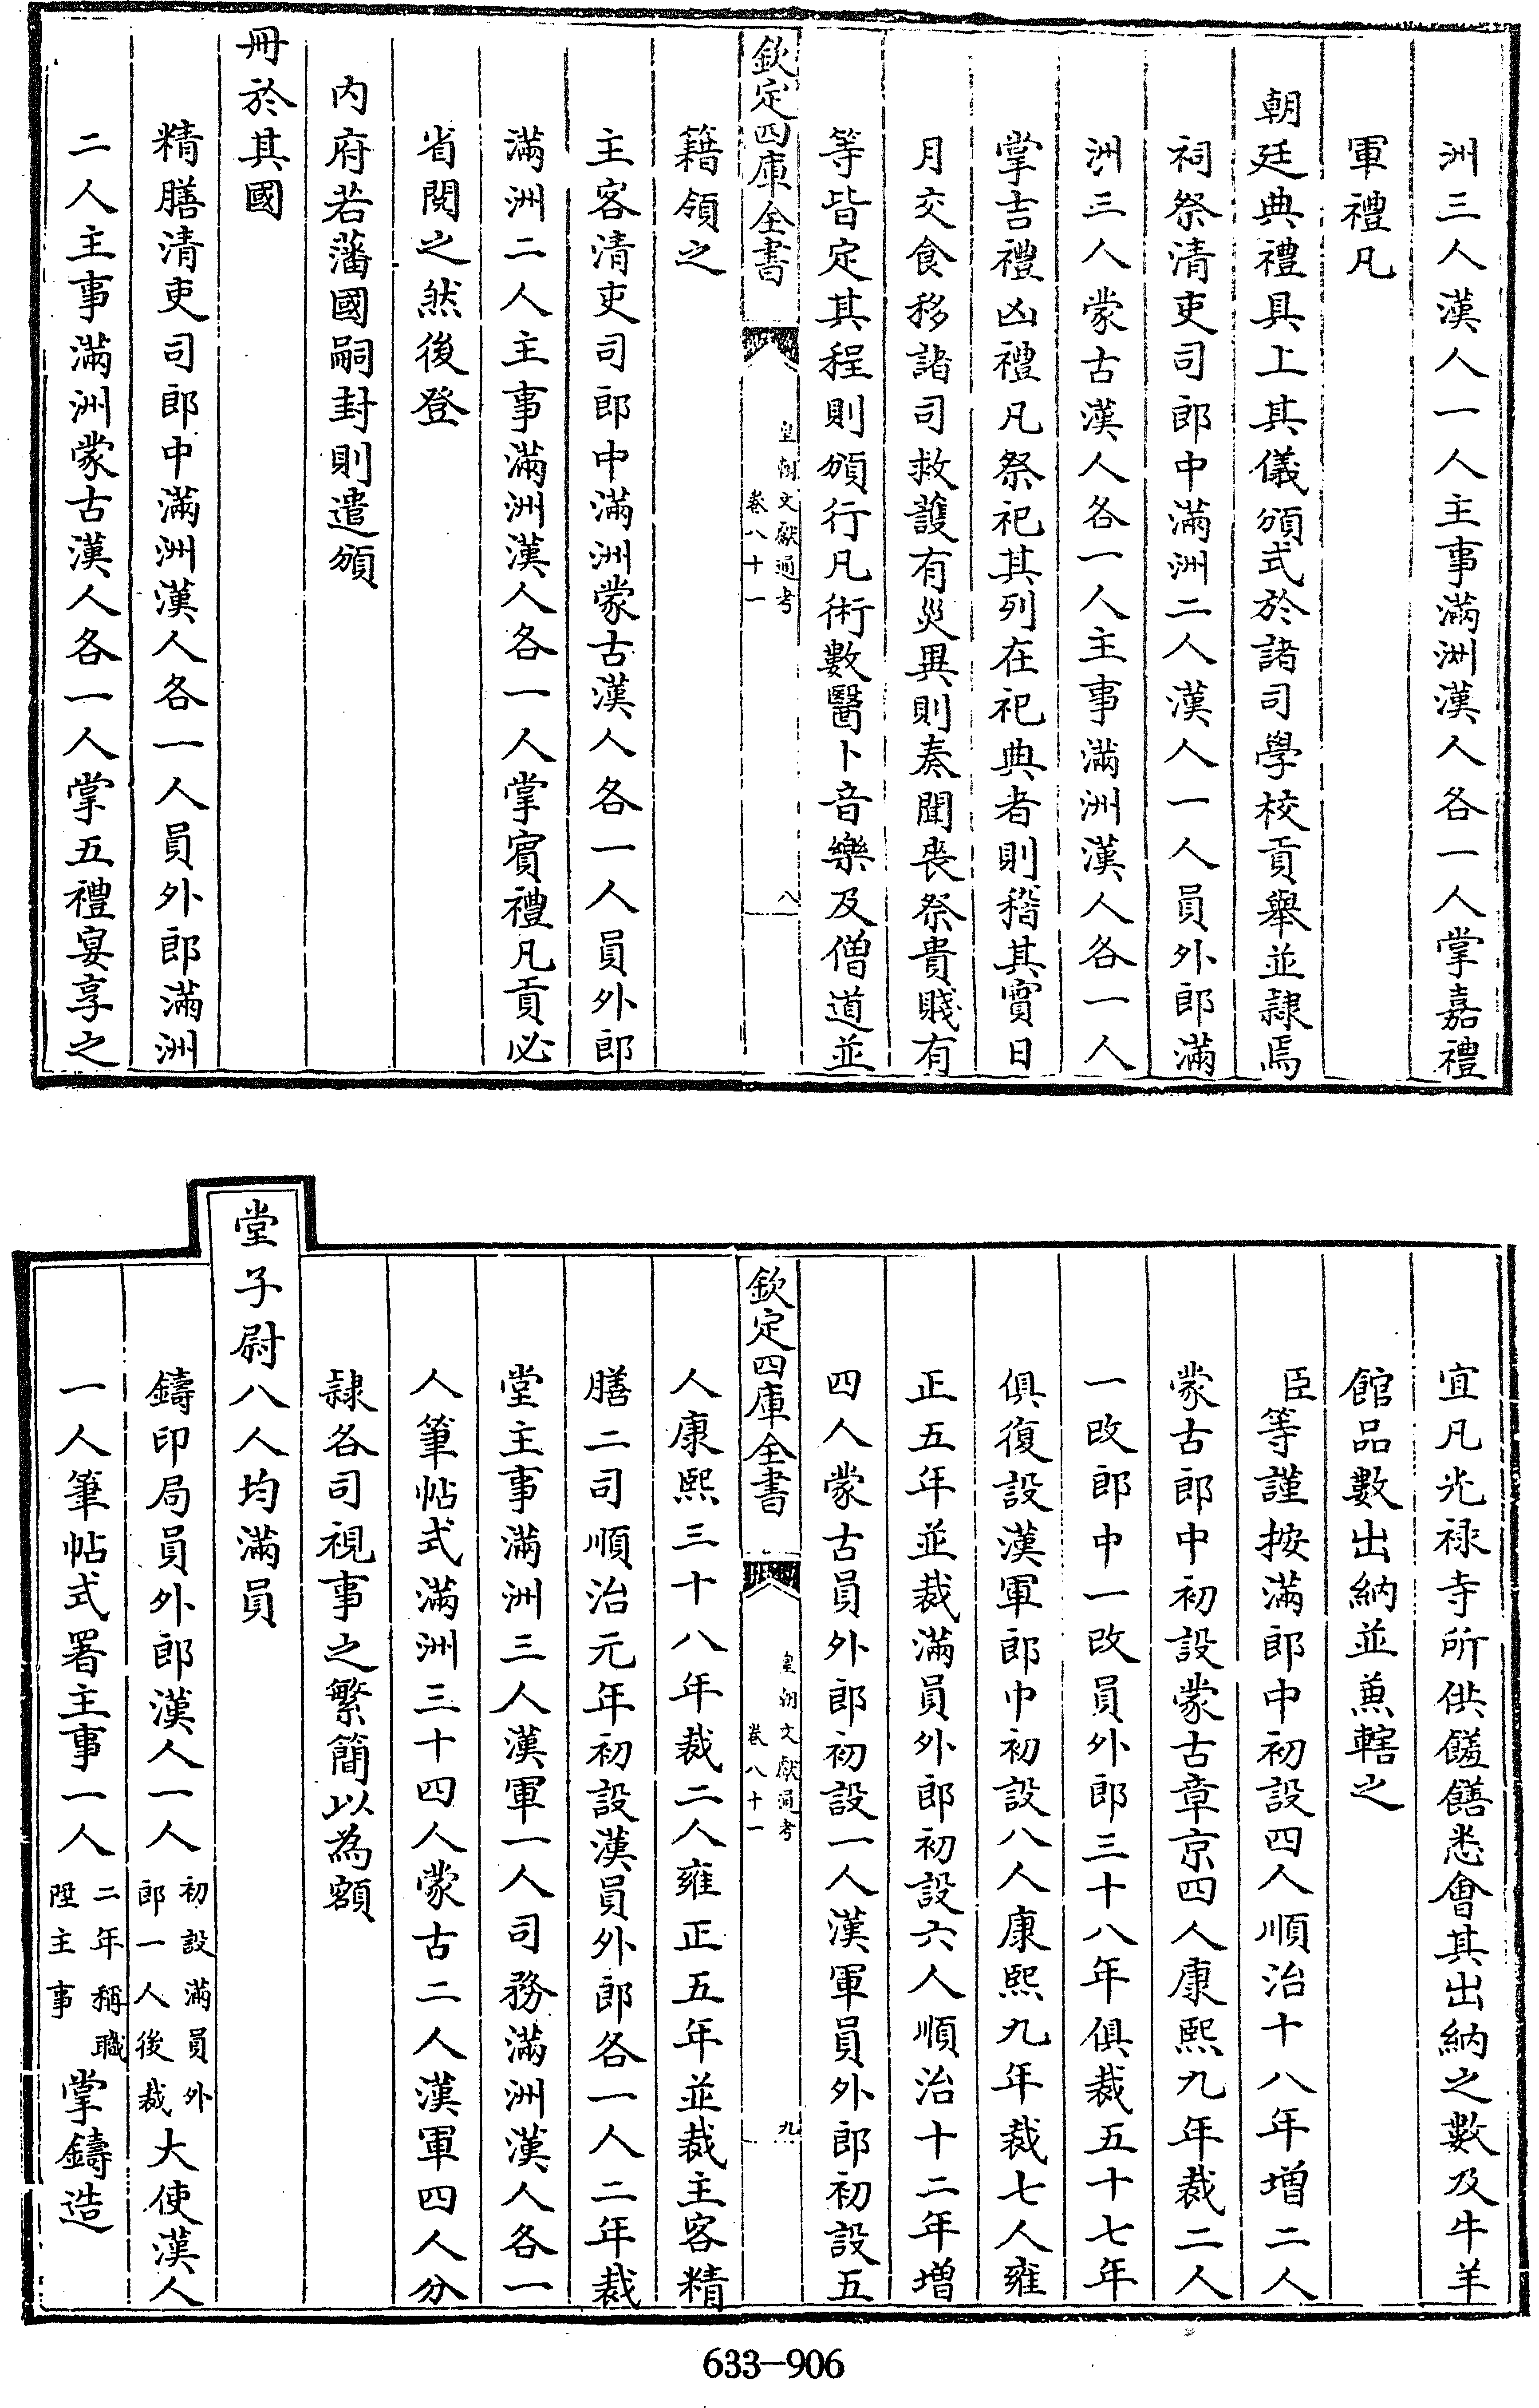 洲三人漢人一人主事滿洲漢人各一人掌嘉禮
軍禮凡
朝廷典禮具上其儀頒式於諸司學校貢舉並隸焉
祠祭清吏司郎中滿洲二人漢人一人員外郎滿
洲三人蒙古漢人各一人主事滿洲漢人各一人
掌吉禮凶禮凡祭祀其列在祀典者則稽其實日
月交食移諸司救護有災異則奏聞喪祭貴賤有
等皆定其程則頒行凡術數醫卜音樂及僧道並
欽定四庫全書
皇朝文獻通考
卷八十一
八
籍領之
主客清吏司郎中滿洲蒙古漢人各一人員外郎
滿洲二人主事滿洲漢人各一人掌賓禮凡貢必
省閱之然後登
內府若藩國嗣封則遣頒
冊於其國
精膳清吏司郎中滿洲漢人各一人員外郎滿洲
二人主事滿洲蒙古漢人各一人掌五禮宴享之
宜凡光禄寺所供餼饍悉會其出納之數及牛羊
館品數出納並兼轄之
臣等謹按滿郎中初設四人順治十八年增二人
蒙古郎中初設蒙古章京四人康熙九年裁二人
一改郎中一改員外郎三十八年俱裁五十七年
俱復設漢軍郎中初設八人康熙九年裁七人雍
正五年並裁滿員外郎初設六人順治十二年增
四人蒙古員外郎初設一人漢軍員外郎初設五
欽定四庫全書
皇朝文獻通考
卷八十一
九
人康熙三十八年裁二人雍正五年並裁主客精
膳二司順治元年初設漢員外郎各一人二年裁
堂主事滿洲三人漢軍一人司務滿洲漢人各一
人筆帖式滿洲三十四人蒙古二人漢軍四人分
隸各司視事之繁簡以為額
堂子尉八人均滿員
鑄印局員外郎漢人一人初設滿員外郎一人後裁大使漢人
一人筆帖式署主事一人二年稱職陞主事掌鑄造
633-906